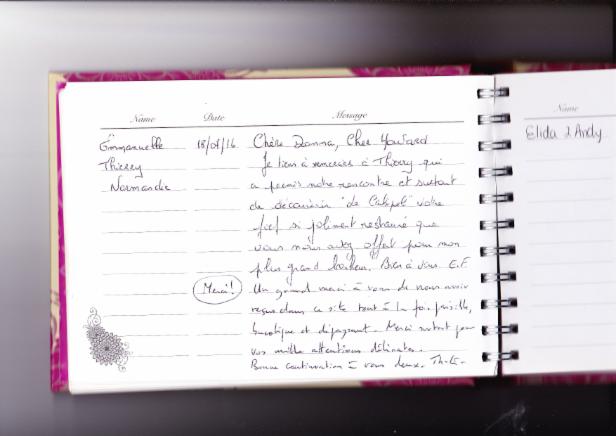 Name Date Message
Emmanuelle 18/07/16 Chère Donna, Cher Howard
Thierry Je tiens à remercier à Thierry qui
Normandie a permis notre rencontre et surtout
de découvrir "de" votre
si joliment restauré que
vous nous avez offert pour mon
plus grand bonheur. Bien à vous E.F
Merci! Un grand merci à vous de nous avoir
reçus dans ce site tout à la fois paisible,
bucolique et dépaysant. Merci surtout pour
vos mille attentions délicates.
Bonne continuation à vous deux. Th.
Name
Elida & Andy